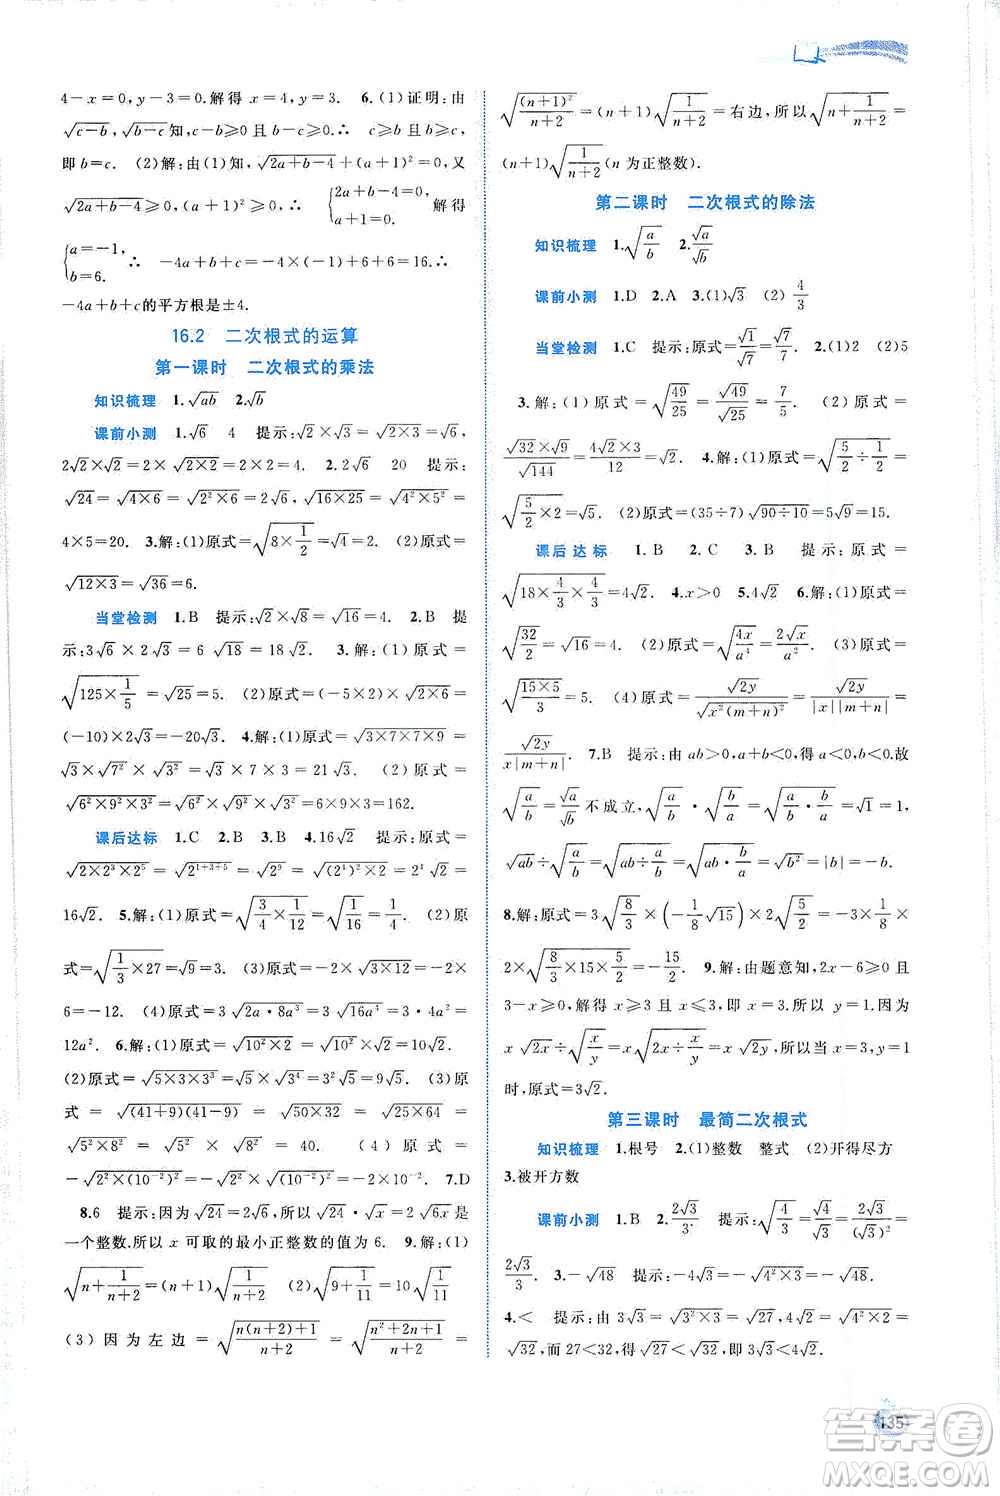 4－x=0,y－3=0.解得 x=4,y=3.　6.(1)证明:由
√(c－b),√(b－c)知,c－b≥0 且 b－c≥0.∴　c≥b 且 b≥c.
即 b=c.　(2)解:由(1)知,√(2a+b－4)+(a+1)²=0,又
√(2a+b－4)≥0,(a+1)²≥0.∴　{2a+b=4, a+1=0.　解得
{a=－1, b=6.　∴　－4a+b+c=－4×(－1)+6+6=16.∴
－4a+b+c的平方根是±4.
16.2　二次根式的运算
第一课时　二次根式的乘法
知识梳理　1.√ab　2.√b
课前小测　1.√6　4　提示:√2×√3=√(2×3)=√6,
2√2×√2=2×√(2×2)=2×2=4.　2.2√6　20　提示:
√24=√(4×6)=√(2²×6)=2√6,√(16×25)=√(4²×5²)=
4×5=20.　3.解:(1)原式=√(8×1/2)=√4=2.　(2)原式=
√(12×3)=√36=6.
当堂检测　1.B　提示:√2×√8=√(2×8)=4.　2.B　提
示:3√6×2√3=6√18=18√2.　3.解:(1)原式=
√(125×1/5)=√25=5.　(2)原式=(－5×2)×√(2×6)=
(－10)×2√3=－20√3.　4.解:(1)原式=√(3×7×7×9)=
√3×√7²×√9=√3×7×3=21√3.　(2)原式=
√(6²×9²×3²)=√6²×√9²×√3²=6×9×3=162.
课后达标　1.C　2.B　3.B　4.16√2　提示:原式=
√(2×2³×2⁵)=√(2^(1+3+5))=√2⁹=√(2⁴)²×2=2⁴√2=
16√2.　5.解:(1)原式=√(3/4×1/12)=√(1/16)=1/4.　(2)原
式=√(1/3×27)=√9=3.　(3)原式=－2×√(4×9)=－2×
6=－12.　(4)原式=3√(2a·8a³)=3√(16a⁴)=3×4a²=
12a².　6.解:(1)原式=√(10²×2)=√10²×√2=10√2.
(2)原式=√(5×3×3³)=√(3⁴×5)=√3⁴×√5=9√5.　(3)原
式=√((41+9)(41－9))=√(50×32)=√(4×400)=
√(5²×8²)=√5²×√8²=5×8=40.　(4)原式=
－√(2×(10⁻²)²)=－√2×√(10⁻²)²=－10⁻²×√2.　7.D
8.6　提示:因为√24=2√6,所以√24·√x=2√6x=
一个整数.所以 x 可取的最小正整数的值为 6.　9.解:(1)
√(n+1/(n+2))　(2)√(9+1/11)=10√(1/11)
(3)因为左边=√((n(n+2)+1)/(n+2))=√((n²+2n+1)/(n+2))=
√((n+1)²/(n+2))=(n+1)√(1/(n+2))=右边,所以√(n+1/(n+2))=
(n+1)√(1/(n+2))(n 为正整数).
第二课时　二次根式的除法
知识梳理　1.√(a/b)　2.√a/√b
课前小测　1.D　2.A　3.(1)√3　(2)4/3
当堂检测　1.C　提示:原式=√1/√7=√7/7.　2.(1)2　(2)5
3.解:(1)原式=√(49/25)=√49/√25=7/5　(2)原式=
√32×√9/√144=4√2×3/12=√2　4.解:(1)原式=√(5/2÷1/2)=
√(5/2×2)=√5.　(2)原式=(35÷7)√(90÷10)=5√9=15.
课后达标　1.B　2.C　3.B　提示:原式=
√(18×4/3×4/3)=4√2　4.x>0　5.4√2　6.解:(1)原式=
√(32/2)=√16=4.　(2)原式=√(4x/a⁴)=2√x/a².　(3)原式=
√(15×5/3)=5.　(4)原式=√2y/√(x²(m+n)²)=√2y/|x||m+n|=
√2y/x|m+n|.　7.B　提示:由 ab>0,a+b<0,得 a<0,b<0,故
√(a/b)=√a/√b 不成立,√(a/b)·√(b/a)=√(a/b×b/a)=√1=1,
√ab÷√(a/b)=√(ab÷a/b)=√(ab·b/a)=√b²=|b|=－b.
8.解:原式=3√(8/3)×(－1/8√15)×2√(5/2)=－3×1/8×
2×√(8/3×15×5/2)=－15/2.　9.解:由题意知,2x－6≥0 且
3－x≥0,解得 x≥3 且 x≤3,即 x=3.所以 y=1.因为
x√2x÷√(x/y)=x√(2x÷x/y)=x√2y,所以当 x=3,y=1
时,原式=3√2.
第三课时　最简二次根式
知识梳理　1.根号　2.(1)整数　整式　(2)开得尽方
3.被开方数
课前小测　1.B　2.2√3/3.　提示:√(4/3)=√4/√3=2√3/(√3)²=
2√3/3.　3.－√48　提示:－4√3=－√(4²×3)=－√48.
4.<　提示:因为3√3=√(3²×3)=√27,4√2=√(4²×2)=
√32,而 27<32,所以√27<√32,即 3√3<4√2.
135
答案圈
MXQE.COM